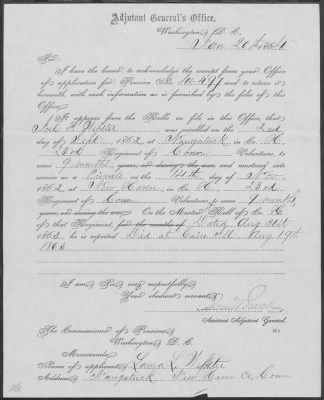 Adjutant General's Office,
Washington, D. C.
Jan 20th, 1864
Sir:
I have the honor to acknowledge the receipt from your Office
of application for Pension No. 40.497, and to return it
herewith, with such information as is furnished by the files of this
Office.
It appears from the Rolls on file in this Office, that
Joel F. Webster was enrolled on the 2nd
day of Sept, 1862, at Naugatuck in Co. H,
23rd Regiment of Conn Volunteers, to
serve 9 months years, or during the war, and mustered into
service as a Private on the 14th day of Nov,
1862, at New Haven, in Co. H, 23rd
Regiment of Conn Volunteers, to serve 9 months
years, or during the war. On the Muster Roll of Co. H
of that Regiment, for the months of Dated Aug 31st
1863, he is reported Died at Cairo Ill Aug 19th
1863
I am, Sir, very respectfully,
Your obedient servant,
Assistant Adjutant General.
The Commissioner of Pensions,
Washington, D. C.
Memoranda:
Name of applicant, Laura L. Webster
Address, Naugatuck New Haven Co, Conn